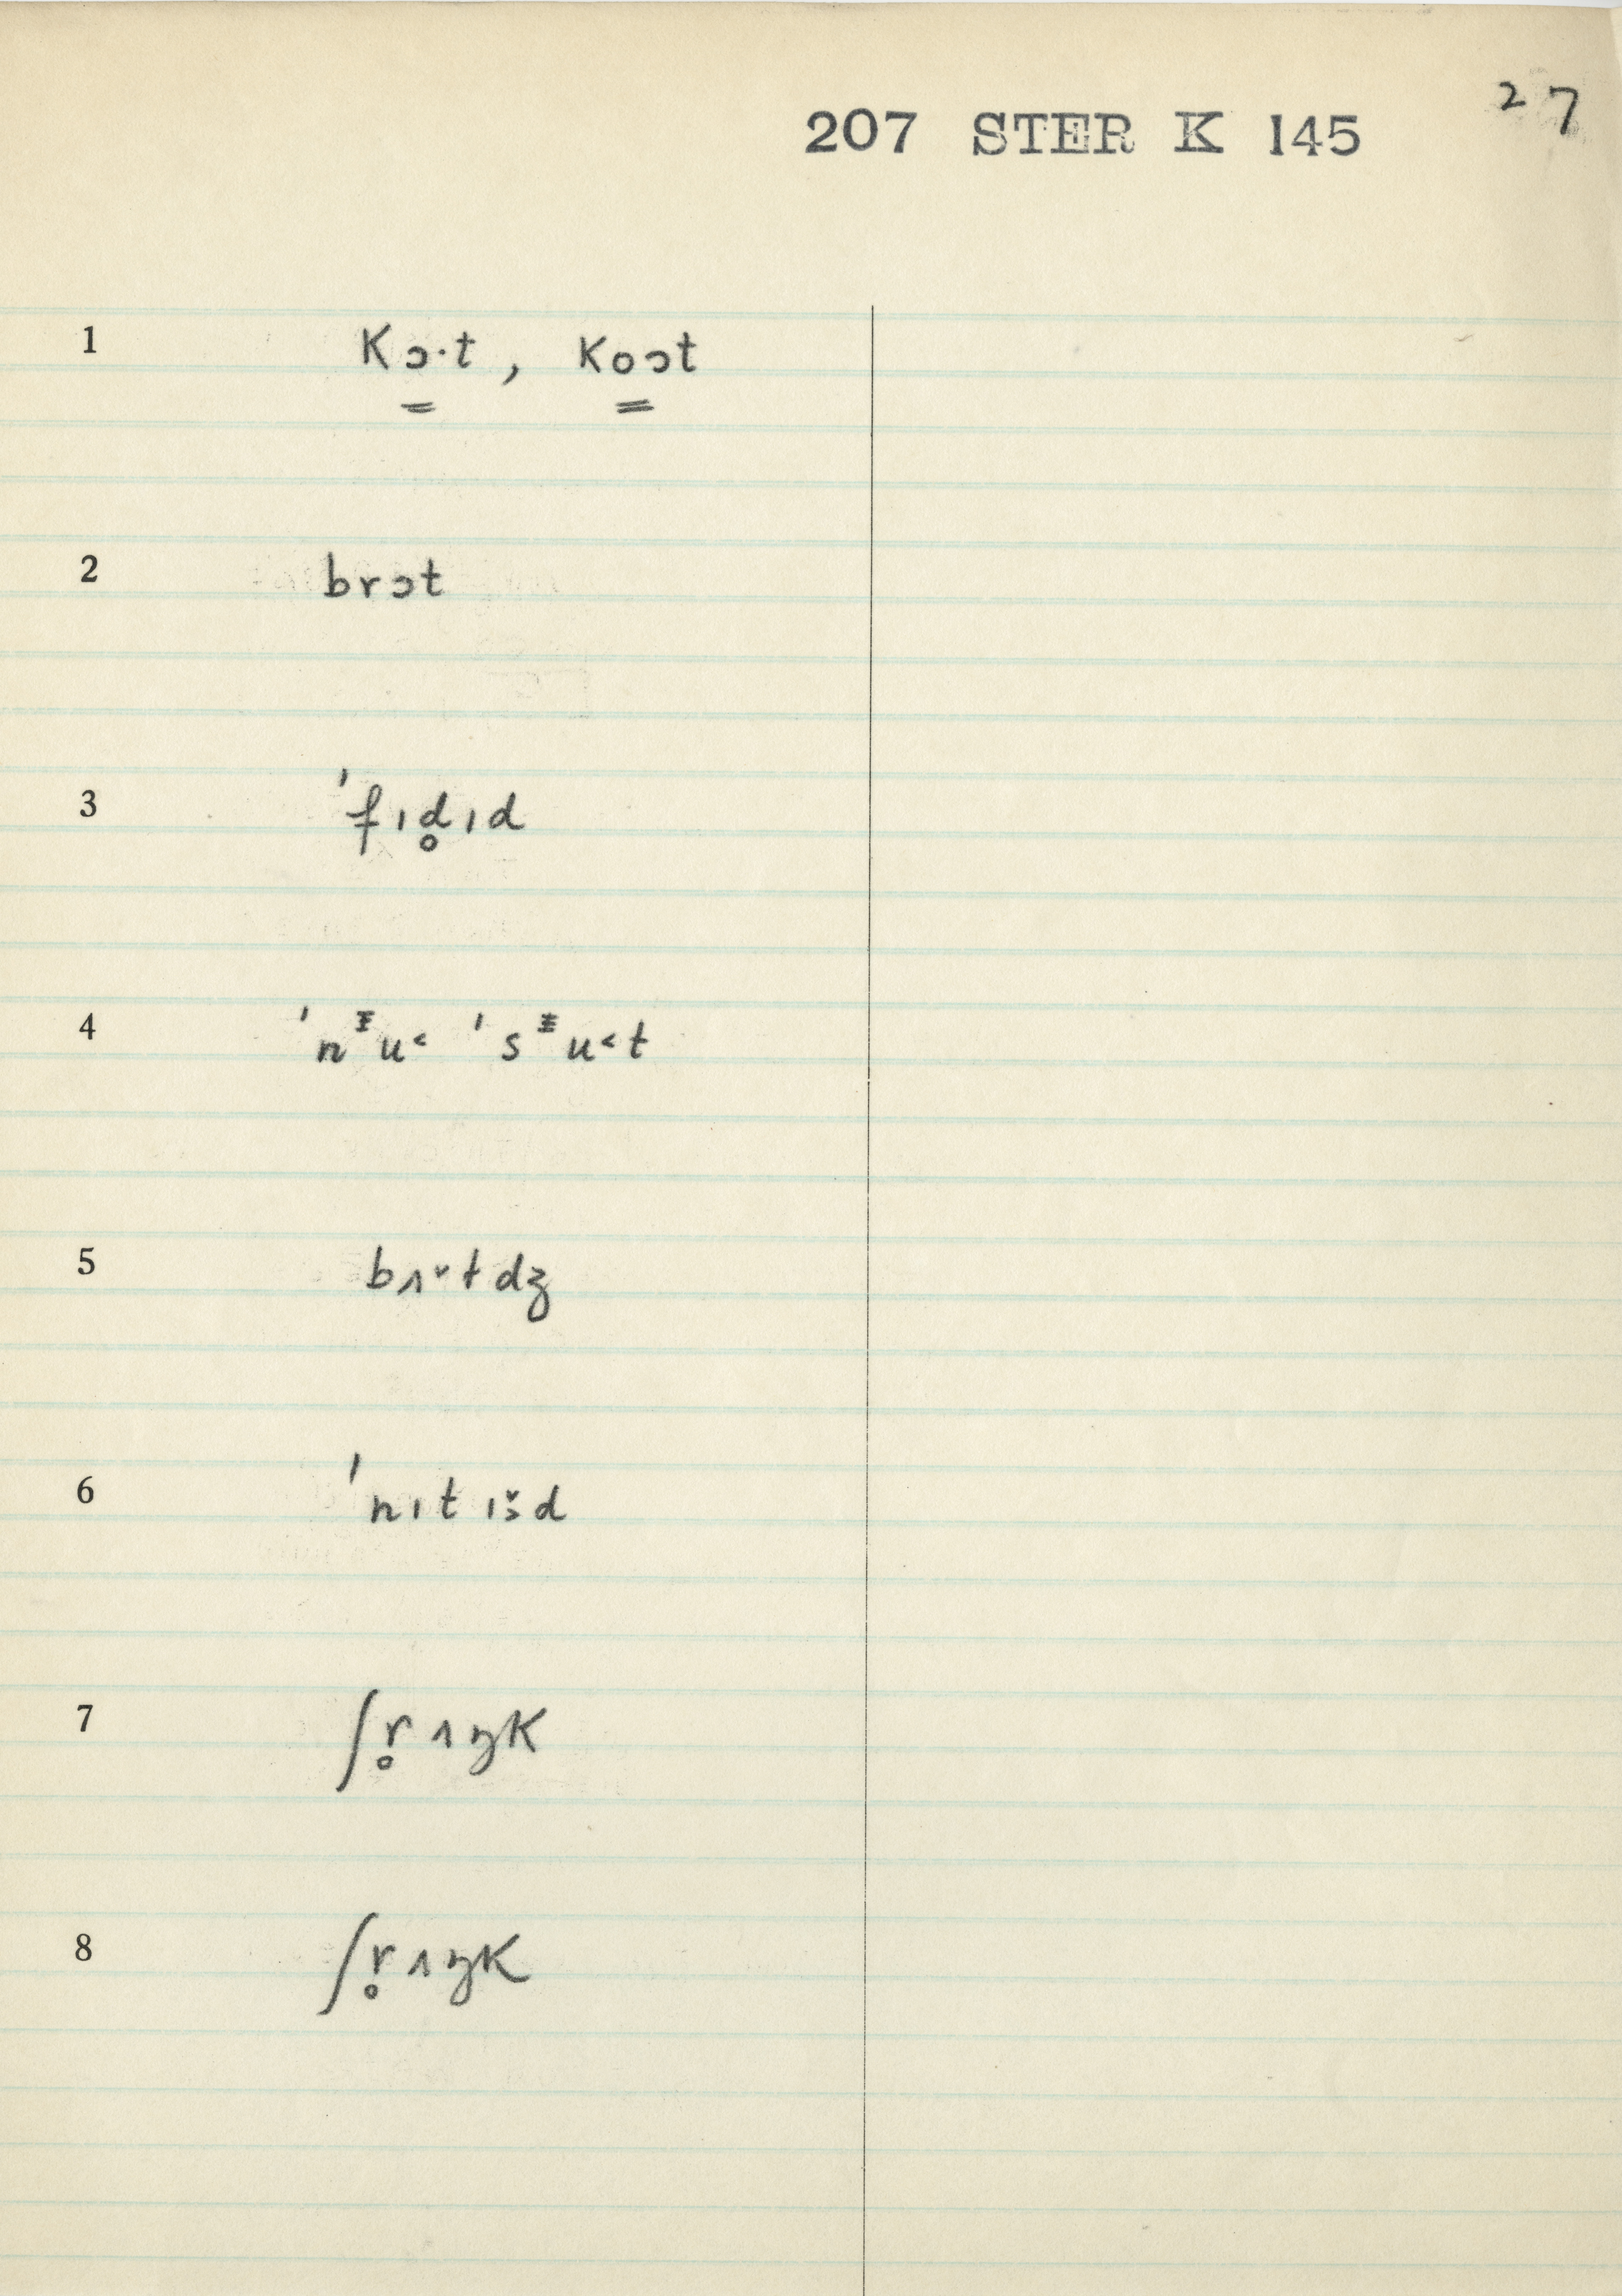 27
207 STER K 145
1 kɔ̳·t, ko̳ɔt
2 brɔt
3 ˈfɪd̥ɪd
4 ˈnᵻu˂ ˈsᵻu˂t
5 bʌˇtdʒ
6 ˈnɪtɪǯd
7 ʃr̥ʌŋk
8 ʃr̥ʌŋk